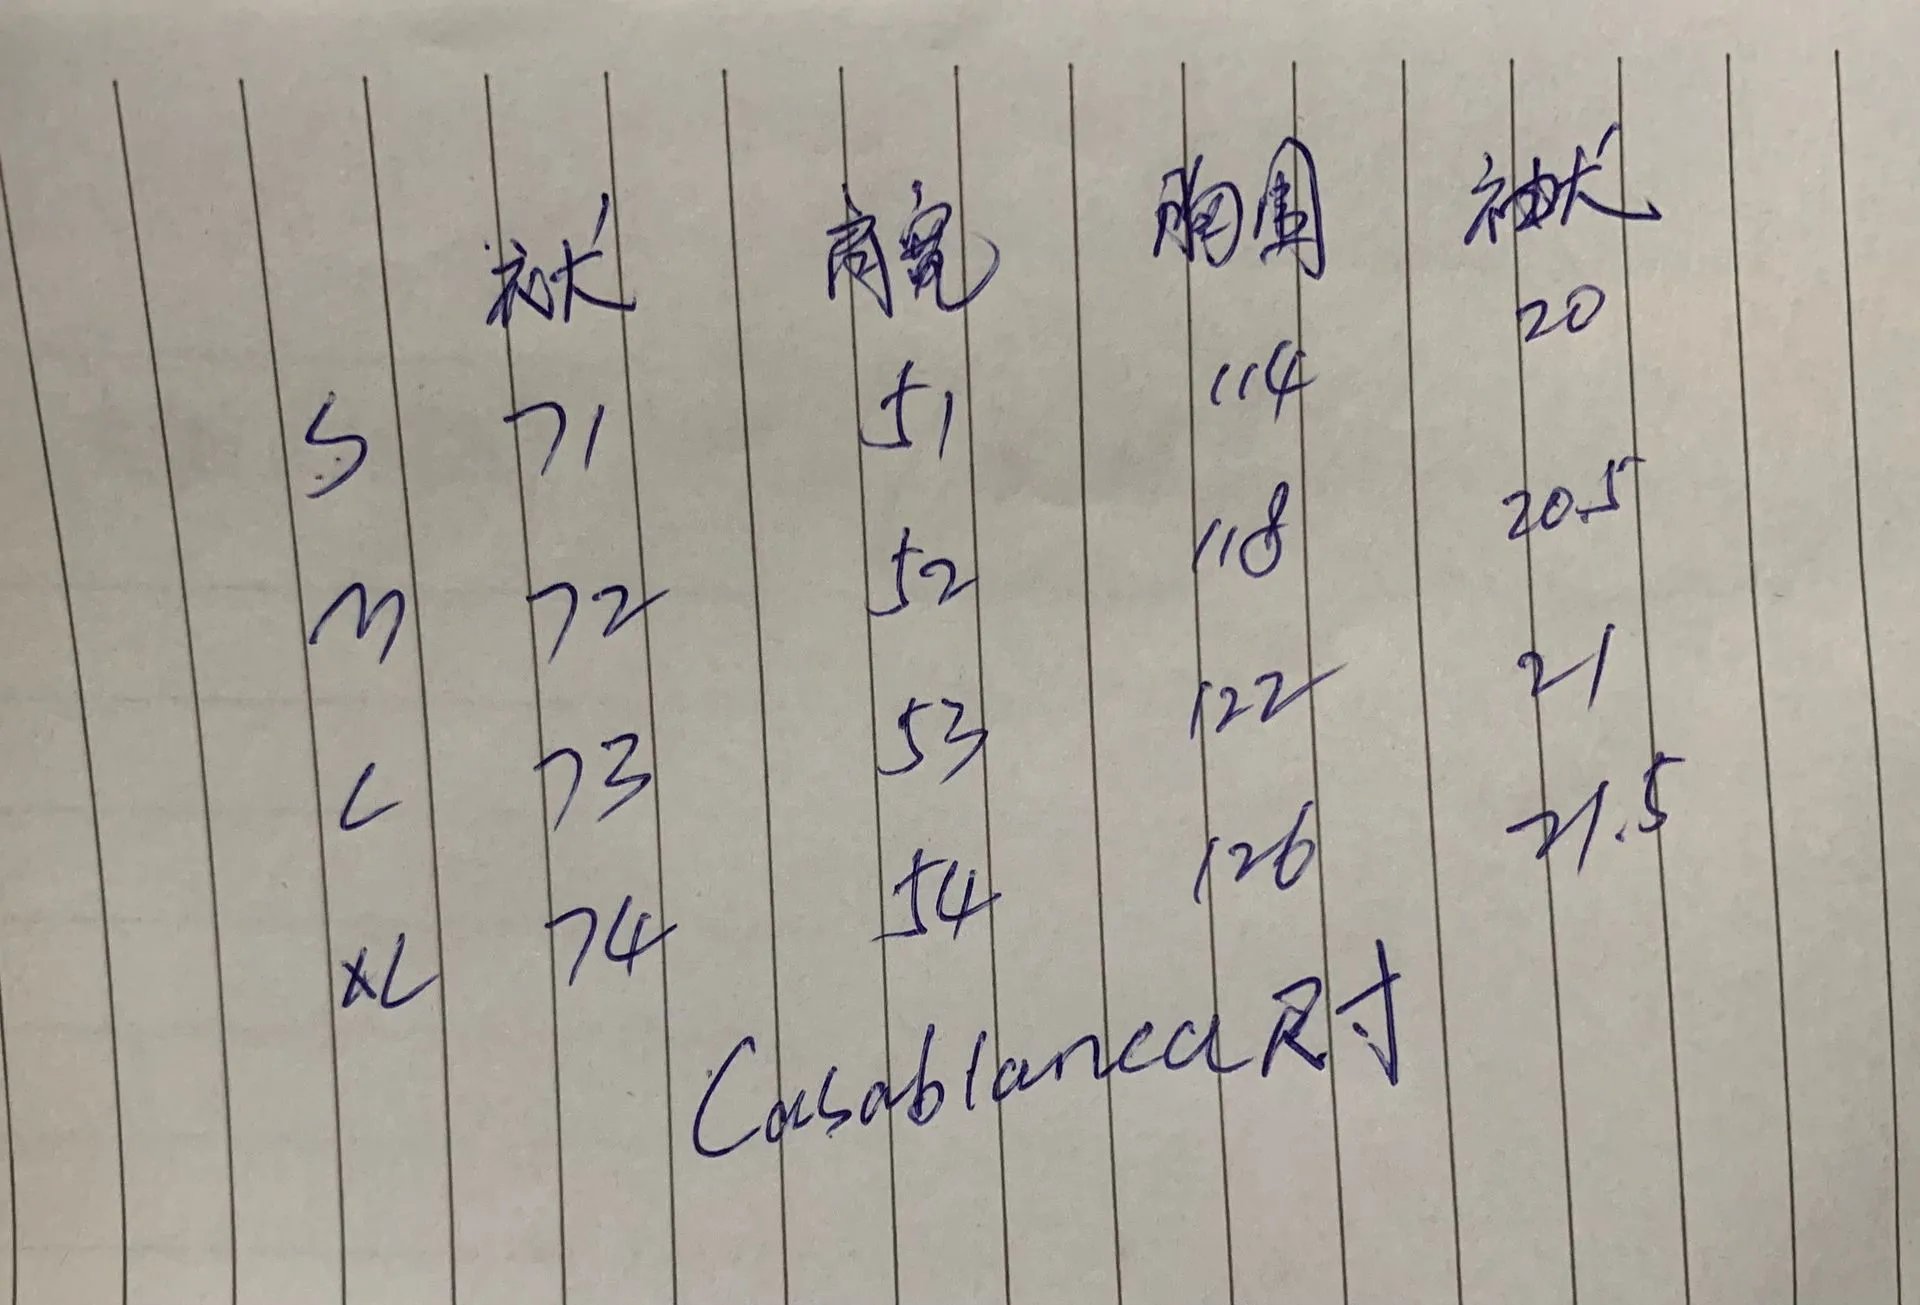 衣长 肩宽 胸围 袖长
S 71 51 114 20
M 72 52 118 20.5
L 73 53 122 21
XL 74 54 126 21.5
Casablanca尺寸